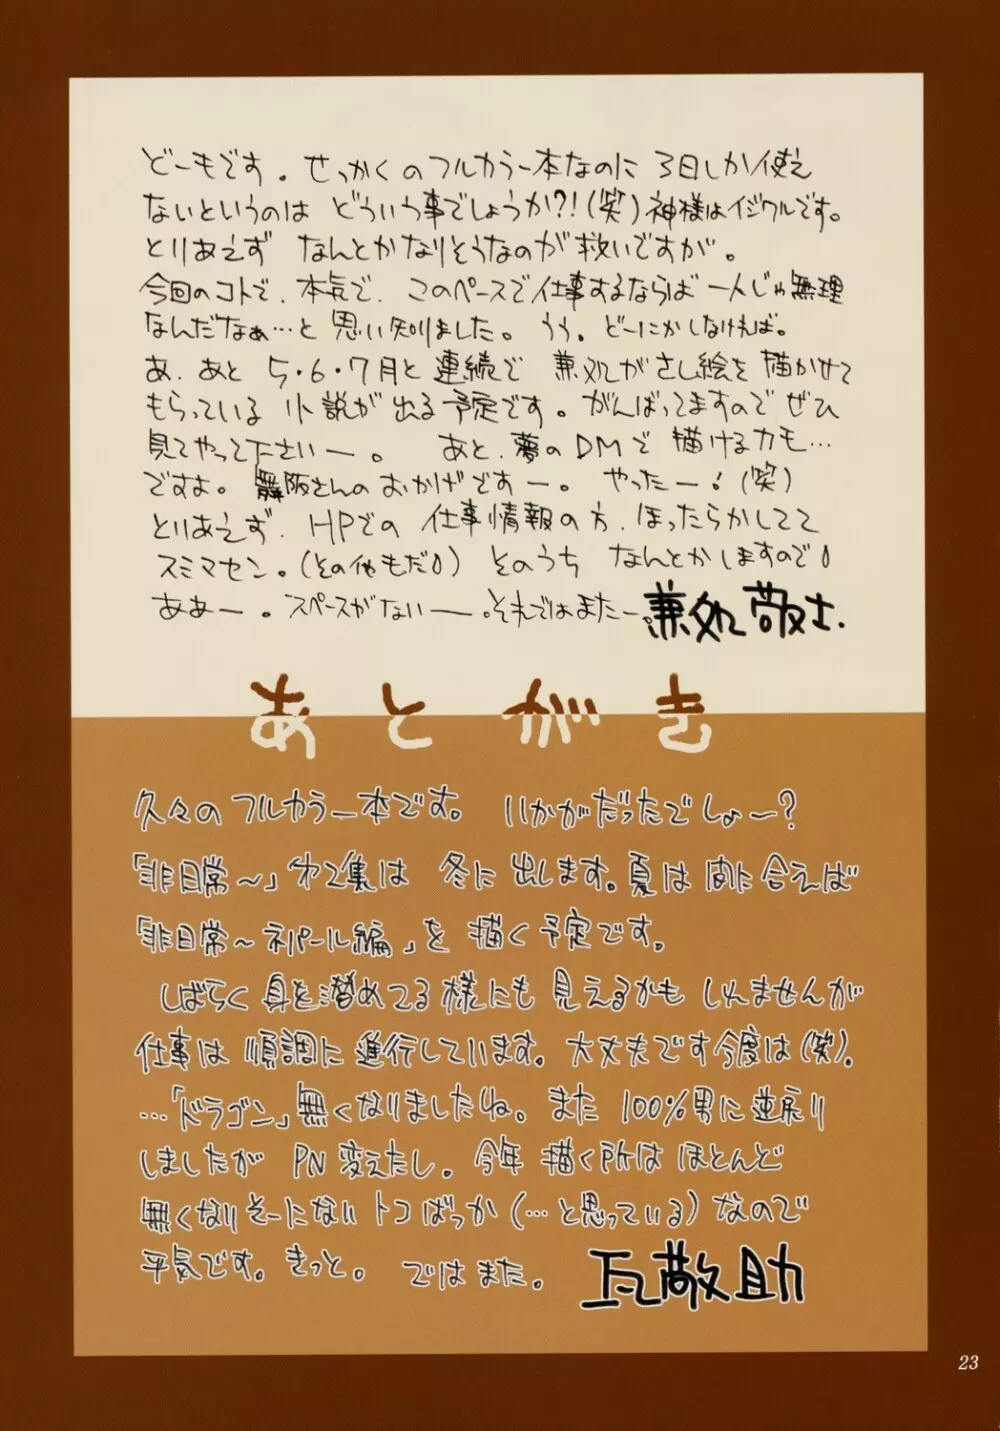 どーもです。せっかくのフルカラー本なのに3日しか使え
ないというのは どういう事でしょうか?!(笑)神様はイジワルです。
とりあえず なんとかなりそうなのが救いですが。
今回のコトで、本気で、このペースで仕事するならば一人じゃ無理
なんだなぁ…と思い知りました。うぅ。どーにかしなければ。
あ、あと 5・6・7月と連続で 兼処がさし絵を描かせて
もらっている 小説が出る予定です。がんばってますのでぜひ
見てやって下さいー。 あと、夢のDMで描けるカモ…
ですよ。舞阪さんのおかげですー。やったー!(笑)
とりあえず、HPでの 仕事情報の方、ほったらかしてて
スミマセン。(その他もだ)そのうち なんとかしますので
ああー。スペースがないー。それではまたー。兼処敬士.
あとがき
久々のフルカラー本です。いかがだったでしょ～?
「非日常～」第2集は 冬に出します。夏は間に合えば
「非日常～ネパール編」を 描く予定です。
しばらく 身を潜めてる様にも 見えるかも しれませんが
仕事は 順調に進行しています。大丈夫です今度は(笑)。
…「ドラゴン」無くなりましたね。また 100%男に逆戻り
しましたが PN変えたし。今年 描く所は ほとんど
無くなりそーにない トコばっか(…と思っている)なので
平気です。きっと。 ではまた。 瓦敬助
23